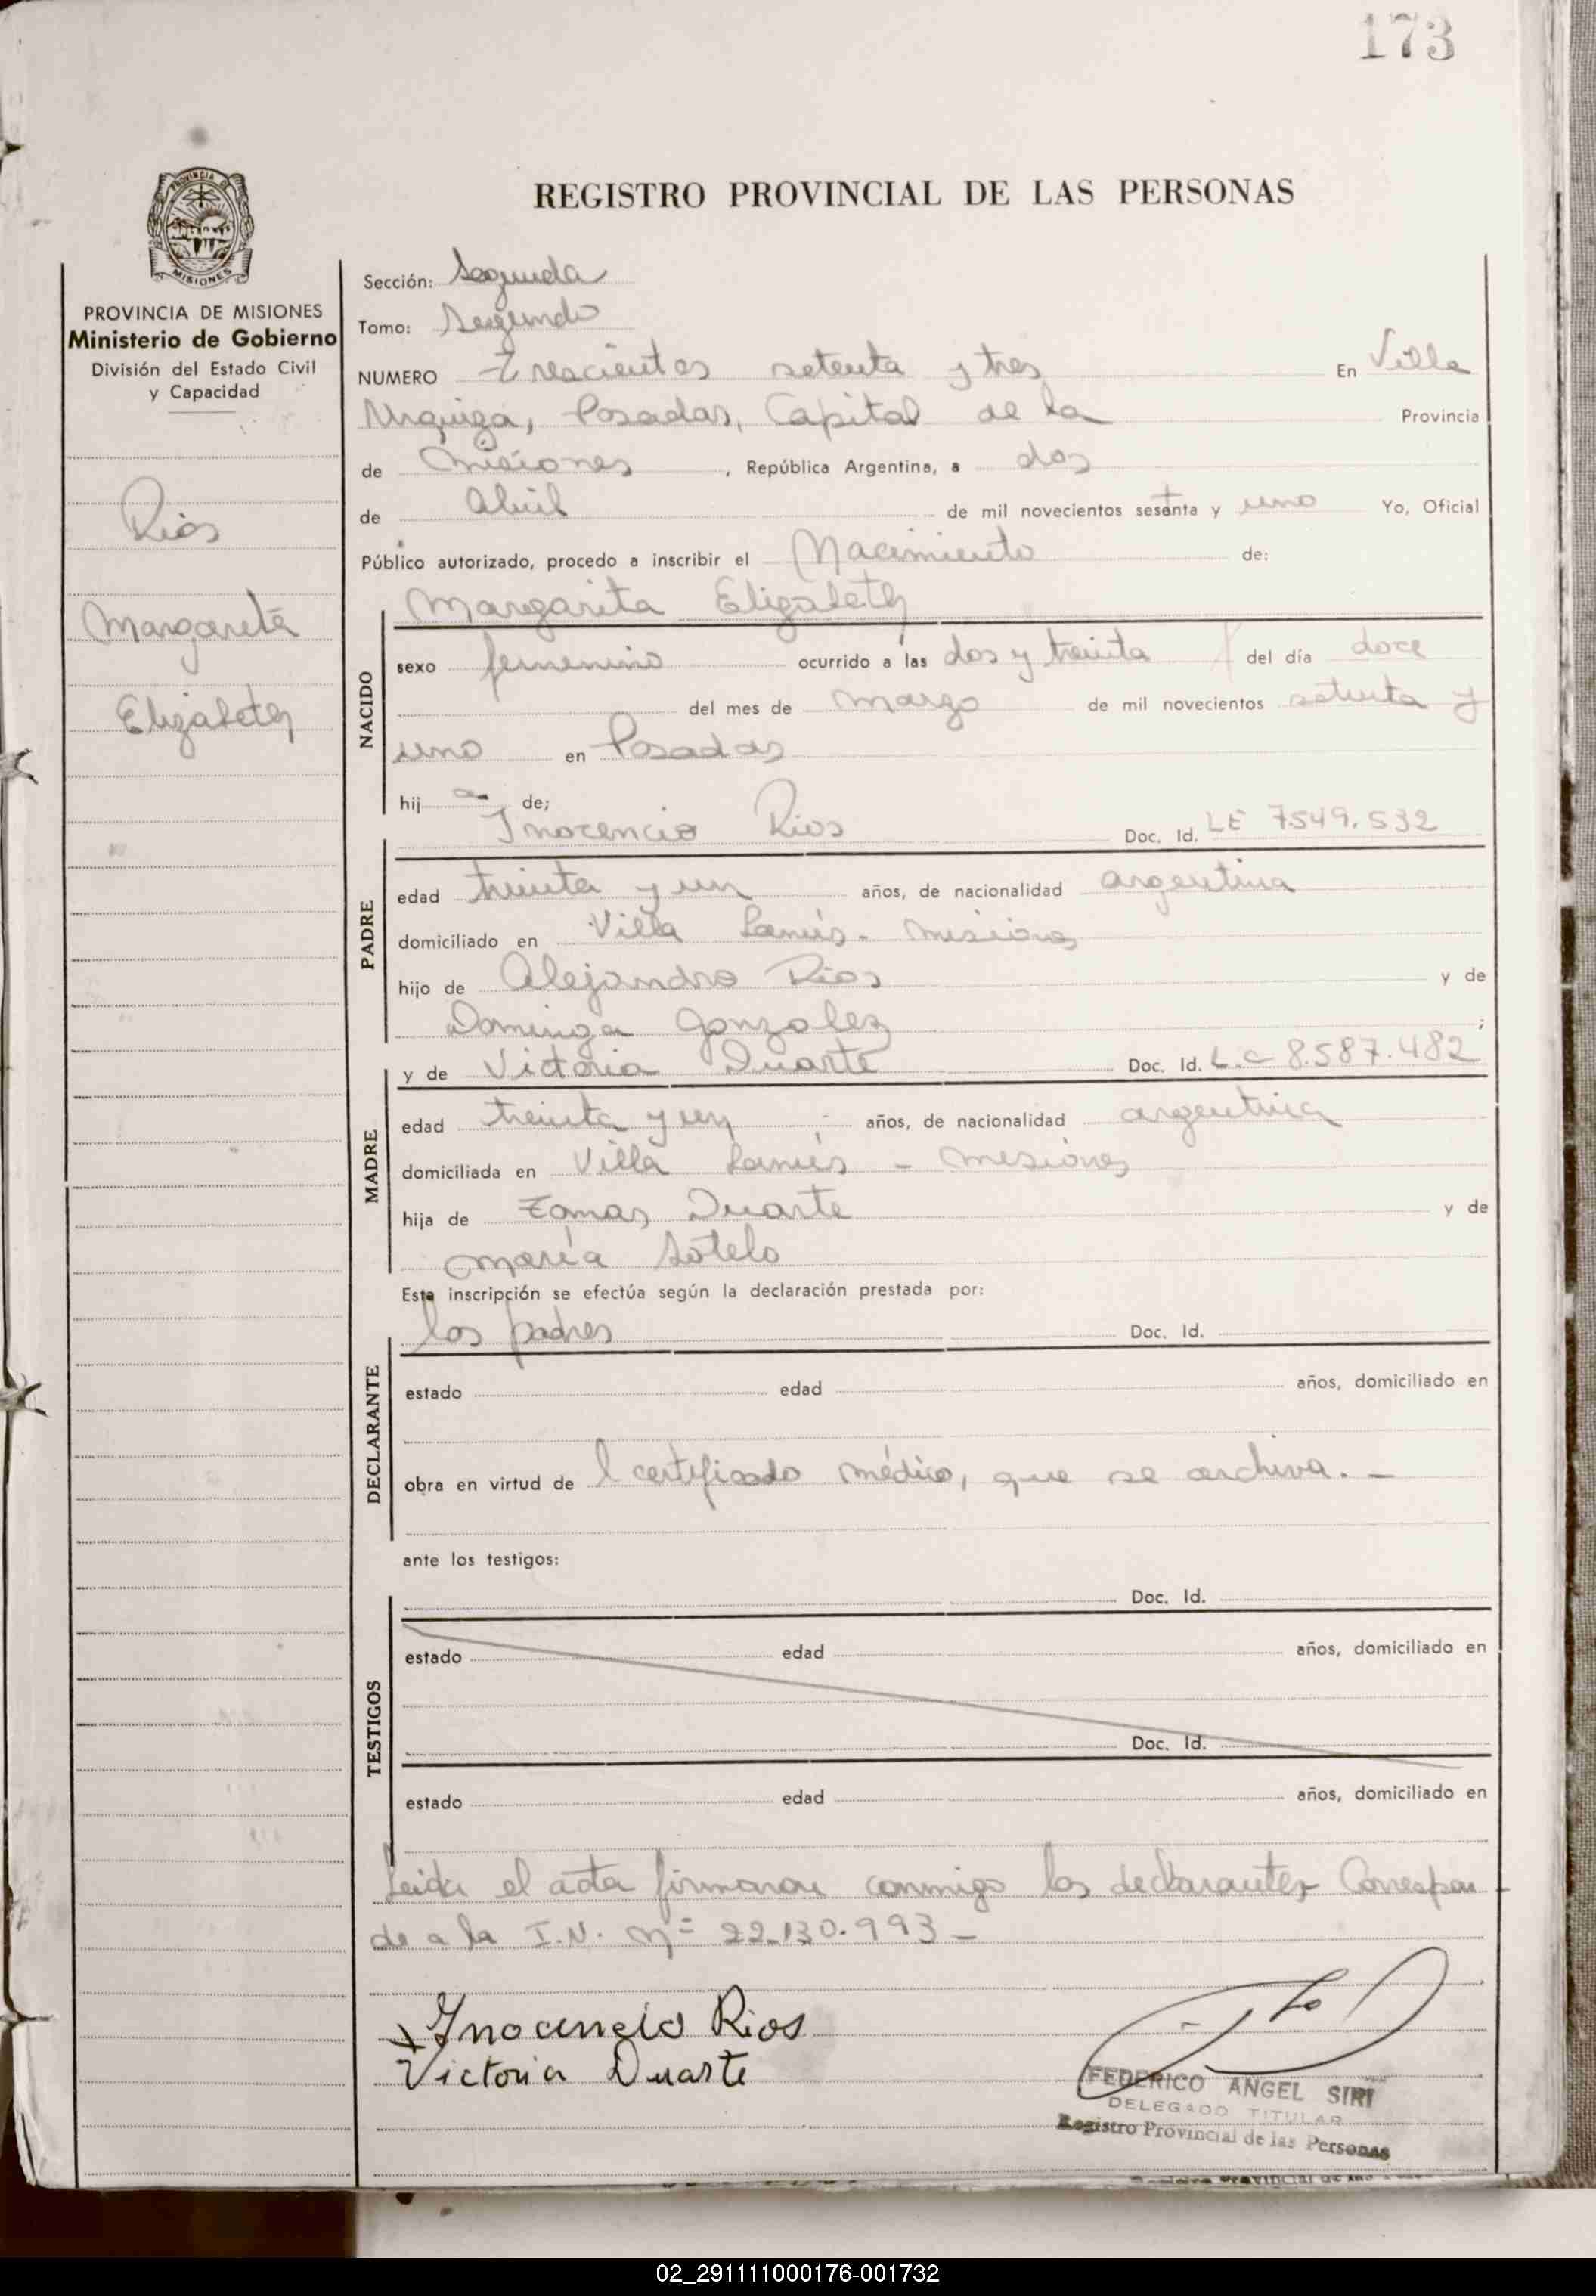 173
REGISTRO PROVINCIAL DE LAS PERSONAS
PROVINCIA DE
MISIONES
PROVINCIA DE MISIONES
Ministerio de Gobierno
División del Estado Civil
y Capacidad
Rios
Margarita
Elizabeth
Sección: Segunda
Tomo: Segundo
NUMERO Trescientos setenta y tres En Villa
Urquiza, Posadas, Capital de la Provincia
de Misiones, República Argentina, a dos
de Abril de mil novecientos setenta y uno Yo, Oficial
Público autorizado, procedo a inscribir el Nacimiento de:
Margarita Elizabeth
NACIDO
sexo femenino ocurrido a las dos y treinta del día doce
del mes de marzo de mil novecientos setenta y
uno en Posadas
hij a de;
Inocencio Rios Doc. Id. LE 7.549.532
PADRE
edad treinta y un años, de nacionalidad argentina
domiciliado en Villa Lanús - Misiones
hijo de Alejandro Rios y de
Dominga Gonzalez;
y de Victoria Duarte Doc. Id. L.C 8.587.482
MADRE
edad treinta y un años, de nacionalidad argentina
domiciliada en Villa Lanús - Misiones
hija de Tomas Duarte y de
María Sotelo
Esta inscripción se efectúa según la declaración prestada por:
los padres Doc. Id.
DECLARANTE
estado edad años, domiciliado en
obra en virtud de l certificado médico, que se archiva. -
ante los testigos:
Doc. Id.
TESTIGOS
estado edad años, domiciliado en
Doc. Id.
estado edad años, domiciliado en
Leida el acta firmaron conmigo los declarantes Correspon
de a la I.N. Nº 22.130.993 -
Inocencio Rios
Victoria Duarte
FEDERICO ANGEL SIRI
DELEGADO TITULAR
Registro Provincial de las Personas
02_291111000176-001732